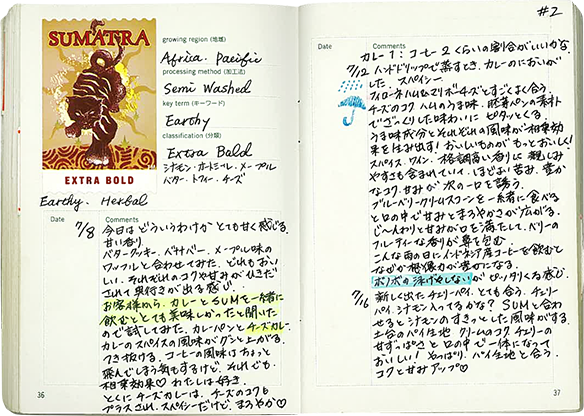 SUMATRA
EXTRA BOLD
growing region (地域)
Africa. Pacific
processing method (加工法)
Semi Washed
key term (キーワード)
Earthy
classification (分類)
Extra Bold
シナモン・オートミール・メープル
バター・トフィー・チーズ
Earthy. Herbal
Date
Comments
7/8
今日はどういうわけかとても甘く感じる。
甘い香り。
バタークッキー、バナナバター、メープル味の
ワッフルと合わせてみた。どれもおいし
い。それぞれのコクや甘みが引きだ
されて奥行きが出る感じ。
お客様から、カレーとSUMを一緒に
飲むととても美味しかったと聞いた
ので試してみた。カレーパンとチーズカレー。
カレーのスパイスの風味がグンと上がる。
でき抜ける。コーヒーの風味はちょっと
飛んでしまう気もするけど、それでも
相乗効果♡わたしは好き。
とくにチーズカレーは、チーズのコクも
プラスされ、スパイシーだけど、まろやか♡
36
#2
Date
Comments
カレー1：コーヒー2くらいの割合がいいかな。
7/12
ハンドドリップで蒸すとき、カレーのにおいが
した。スパイシー。
フィローネハムu0026マリボーチーズとすごくよく合う。
チーズのコク ハムのうま味、胚芽パンの素朴
でざっくりした味わいにピタッとくる。
うま味成分とそれぞれの風味が相乗効
果を生み出す！おいしいものがもっとおいしく！
スパイス、ワイン、格調高い香りに親しみ
やすさも含まれていて、ほどよい苦み、豊か
なコク、甘みが次の一口を誘う。
ブルーベリークリームスコーンを一緒に食べる
と口の中で甘みとまろやかさが広がる。
じ〜んわりと甘みが口を満たして、ベリーの
フルーティーな香りが鼻を包む。
こんな雨の日にインドネシア産コーヒーを飲むと
なぜか想像力が豊かになる。
ホノボの
がピッタリくる感じ。
7/16
新しく出たチェリーパイ、とても合う。チェリー
パイ、シナモン入ってるかな？SUMと合わ
せるとシナモンのすきっとした風味がする。
土台のパイ生地 クリームのコク チェリーの
甘ずっぱさと口の中で一体になって
おいしい！やっぱり、パイ生地と合う。
コクと甘みアップ♡
37